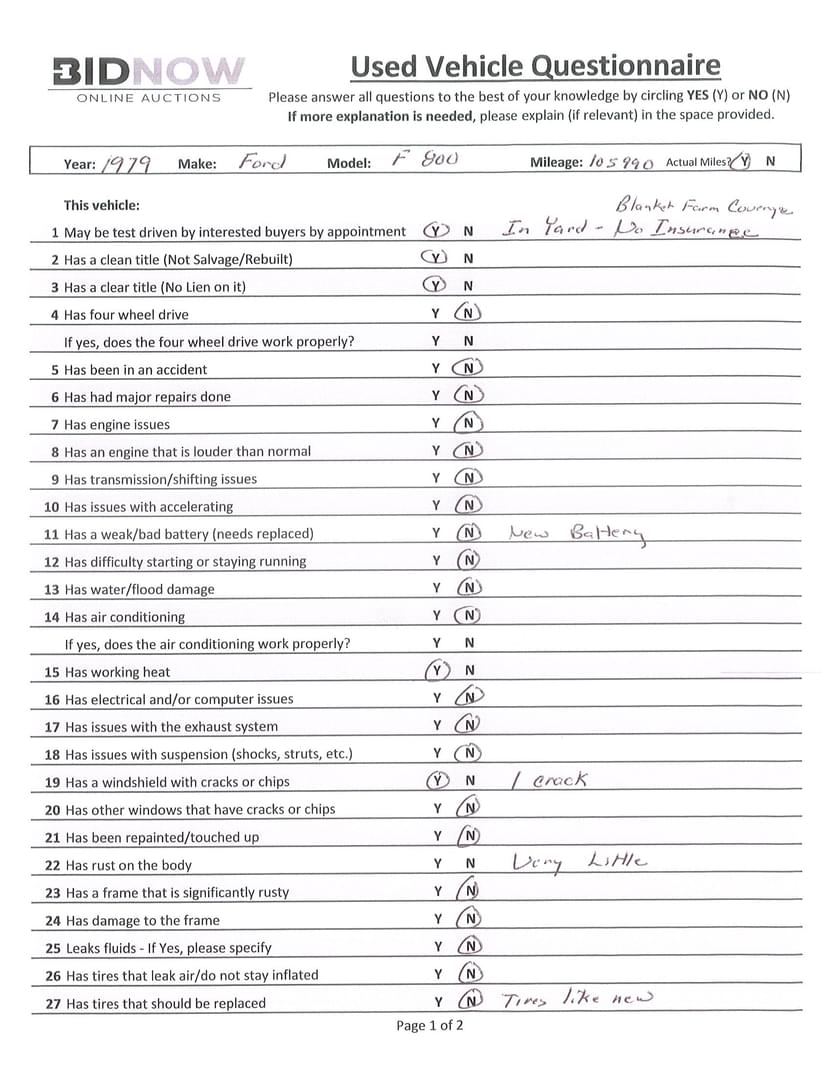 BIDNOW
ONLINE AUCTIONS
Used Vehicle Questionnaire
Please answer all questions to the best of your knowledge by circling YES (Y) or NO (N)
If more explanation is needed, please explain (if relevant) in the space provided.
Year: 1979 Make: Ford Model: F 800 Mileage: 105990 Actual Miles? Y N
This vehicle: Blanket Farm Coverage
1 May be test driven by interested buyers by appointment Y N In Yard - No Insurance
2 Has a clean title (Not Salvage/Rebuilt) Y N
3 Has a clear title (No Lien on it) Y N
4 Has four wheel drive Y N
If yes, does the four wheel drive work properly? Y N
5 Has been in an accident Y N
6 Has had major repairs done Y N
7 Has engine issues Y N
8 Has an engine that is louder than normal Y N
9 Has transmission/shifting issues Y N
10 Has issues with accelerating Y N
11 Has a weak/bad battery (needs replaced) Y N New Battery
12 Has difficulty starting or staying running Y N
13 Has water/flood damage Y N
14 Has air conditioning Y N
If yes, does the air conditioning work properly? Y N
15 Has working heat Y N
16 Has electrical and/or computer issues Y N
17 Has issues with the exhaust system Y N
18 Has issues with suspension (shocks, struts, etc.) Y N
19 Has a windshield with cracks or chips Y N 1 crack
20 Has other windows that have cracks or chips Y N
21 Has been repainted/touched up Y N
22 Has rust on the body Y N Very Little
23 Has a frame that is significantly rusty Y N
24 Has damage to the frame Y N
25 Leaks fluids - If Yes, please specify Y N
26 Has tires that leak air/do not stay inflated Y N
27 Has tires that should be replaced Y N Tires like new
Page 1 of 2